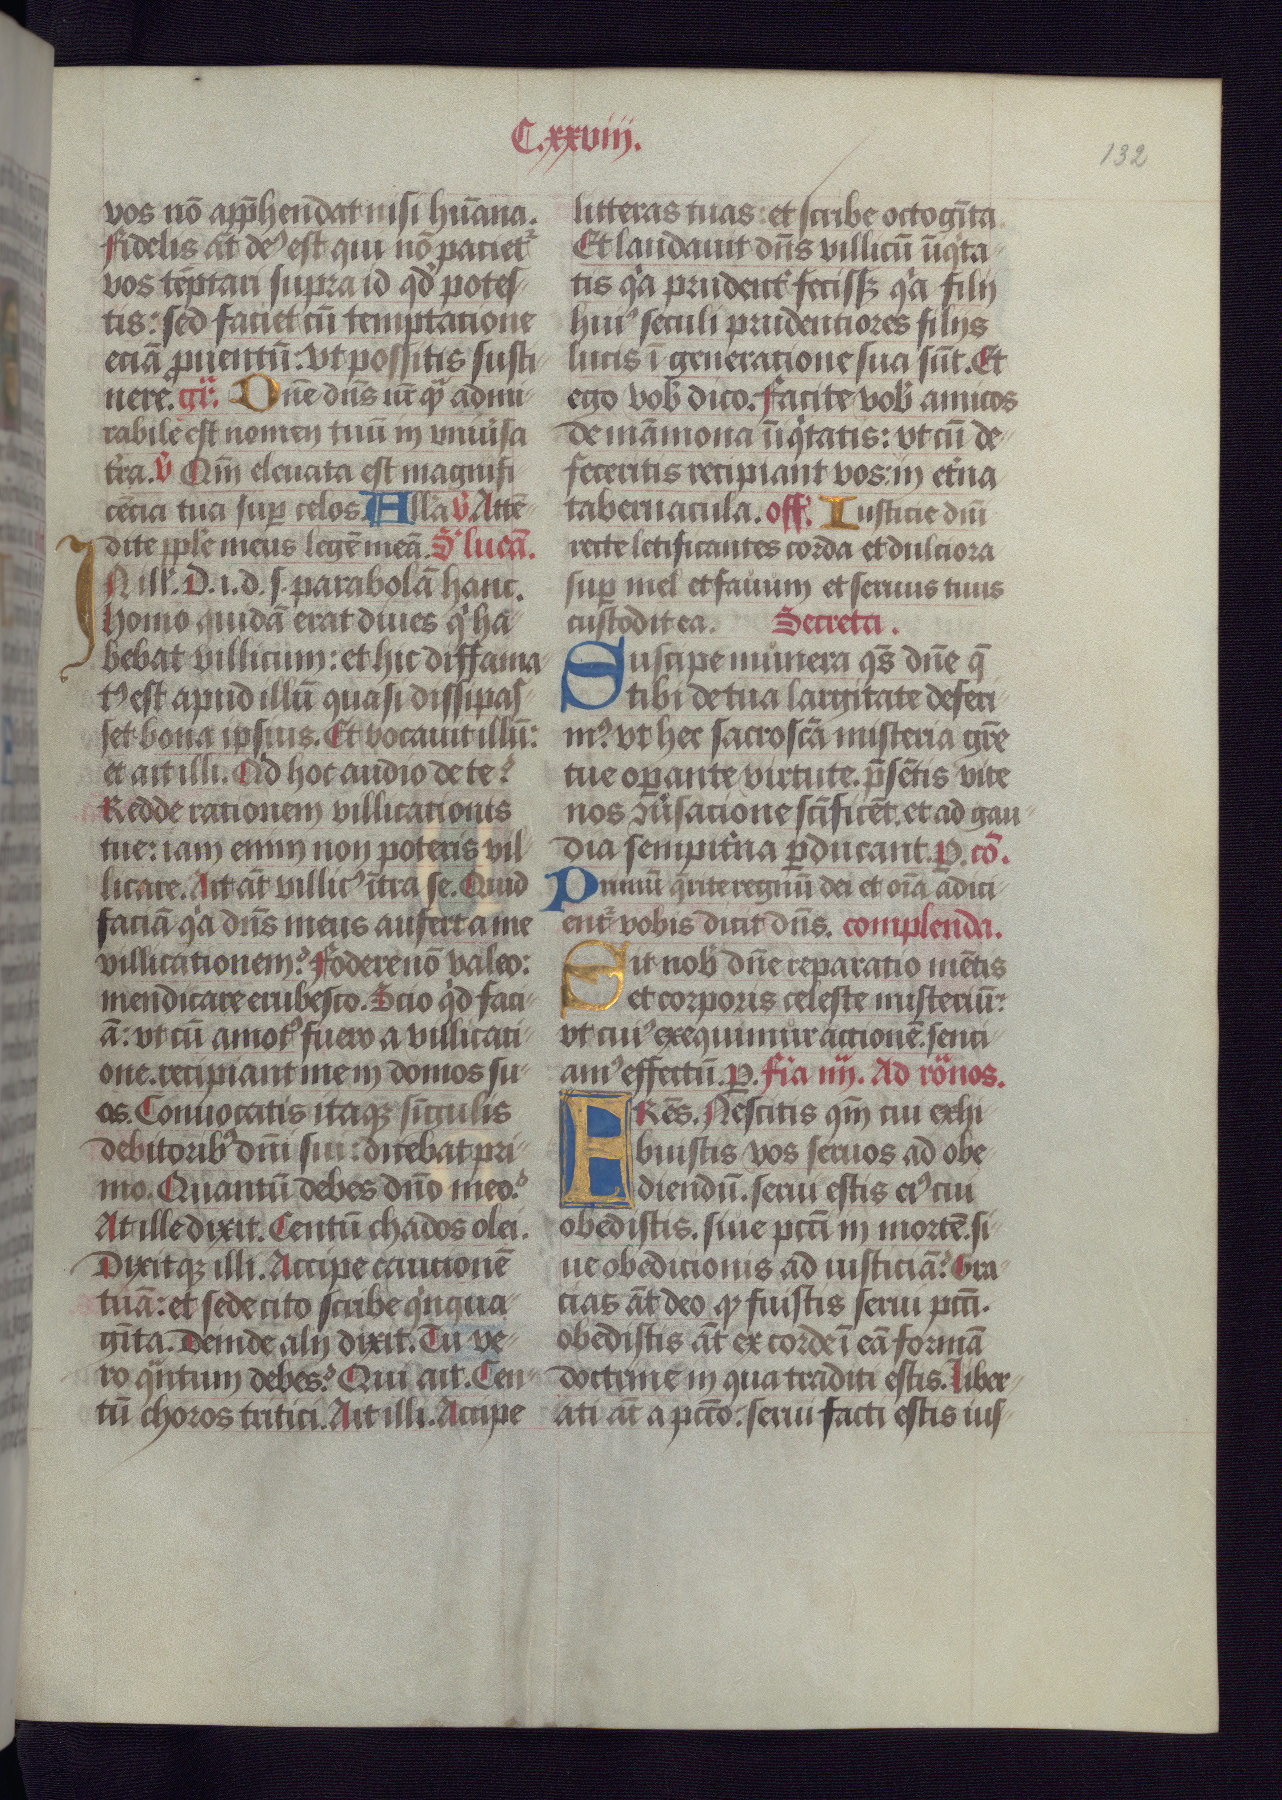 C.xxviij.
132
vos nō app̄hendat nisi hūana.
Fidelis āt deꝰ est qui nō paciet᷑
vos tēptari supra id qđ potes-
tis: sed faciet cū temptatione
eciā ꝓuentū: vt possitis susti-
nere. gͬ. Dn̄e dn̄s nr̄ qͣ admi-
rabile est nomen tuū in vniuˀsa
tˀra. v̄ Qm̄ eleuata est magnifi-
cēcia tua suꝑ celos. Alla v̄. Attē-
dite pple meus legē meā. S. lucā.
IN ill'. D. i. d. s. parabolā hanc.
homo quidā erat diues qͥ ha-
bebat villicum: et hic diffama-
tꝰ est apud illū quasi dissipas-
set bona ipsius. Et vocauit illū:
et ait illi. Qd hoc audio de te?
Redde rationem villicationis
tue: iam enim non poteris vil-
licare. Ait āt villicꝰ ītra se. Quid
faciā qͣ dn̄s meus aufert a me
villicationem? Fodere nō valeo:
mendicare erubesco. Scio qͥd faci-
ā: vt cū amotꝰ fuero a villicati-
one. recipiant me in domos su-
os. Conuocatis itaqꝫ singulis
debitoribꝰ dn̄i sui: dicebat pri-
mo. Quantū debes dn̄o meo?
At ille dixit. Centū chados olei.
Dixitqꝫ illi. Accipe cautionē
tuā: et sede cito scribe qͥnqua-
gīta. Deinde alij dixit. Tu ve-
ro qͣntum debes? Qui ait. Cen-
tū choros tritici. Ait illi. Accipe
litteras tuas: et scribe octogīta.
Et laudauit dn̄s villicū īiqͥta-
tis qͥa prudent᷑ fecissꝫ qͥa filij
huiꝰ seculi prudentiores filijs
lucis ī generatione sua sūt. Et
ego vob̄ dico. Facite vob̄ amicos
de māmona īiqͥtatis: vt cū de-
feceritis recipiant vos in etˀna
tabernacula. off. Iusticie dn̄i
recte letificantes corda et dulciora
suꝑ mel et fauum et seruus tuus
custodit ea. Secreta.
Suscipe munera qs̄ dn̄e q̄
tibi de tua largitate deferi-
mꝰ. vt hec sacroscā misteria gr̄e
tue oꝑante virtute. p̄sētis vite
nos ꝯuˀsacione scīficēt. et ad gau-
dia sempitˀna ꝑducant. P. cō.
Primū qͣrite regnū dei et oīa adici-
ent᷑ vobis dicit dn̄s. complenda.
Sit nob̄ dn̄e reparatio mētis
et corporis celeste misteriū:
vt cuiꝰ exequimur actionē. senci-
amꝰ effectū. P. Fīa iiij. Ad ro͞nos.
FRēs. Nescitis qm̄ cui exhi-
buistis vos seruos ad obe-
diendū. serui estis eiꝰ cui
obedistis. siue pcc̄i in mortē. si-
ue obedicionis ad iusticiā? Gra-
cias āt deo ꝙ fuistis serui pcc̄i.
obedistis āt ex corde ī eā formā
doctrine in qua traditi estis. Liber-
ati āt a pcc̄o. serui facti estis ius-